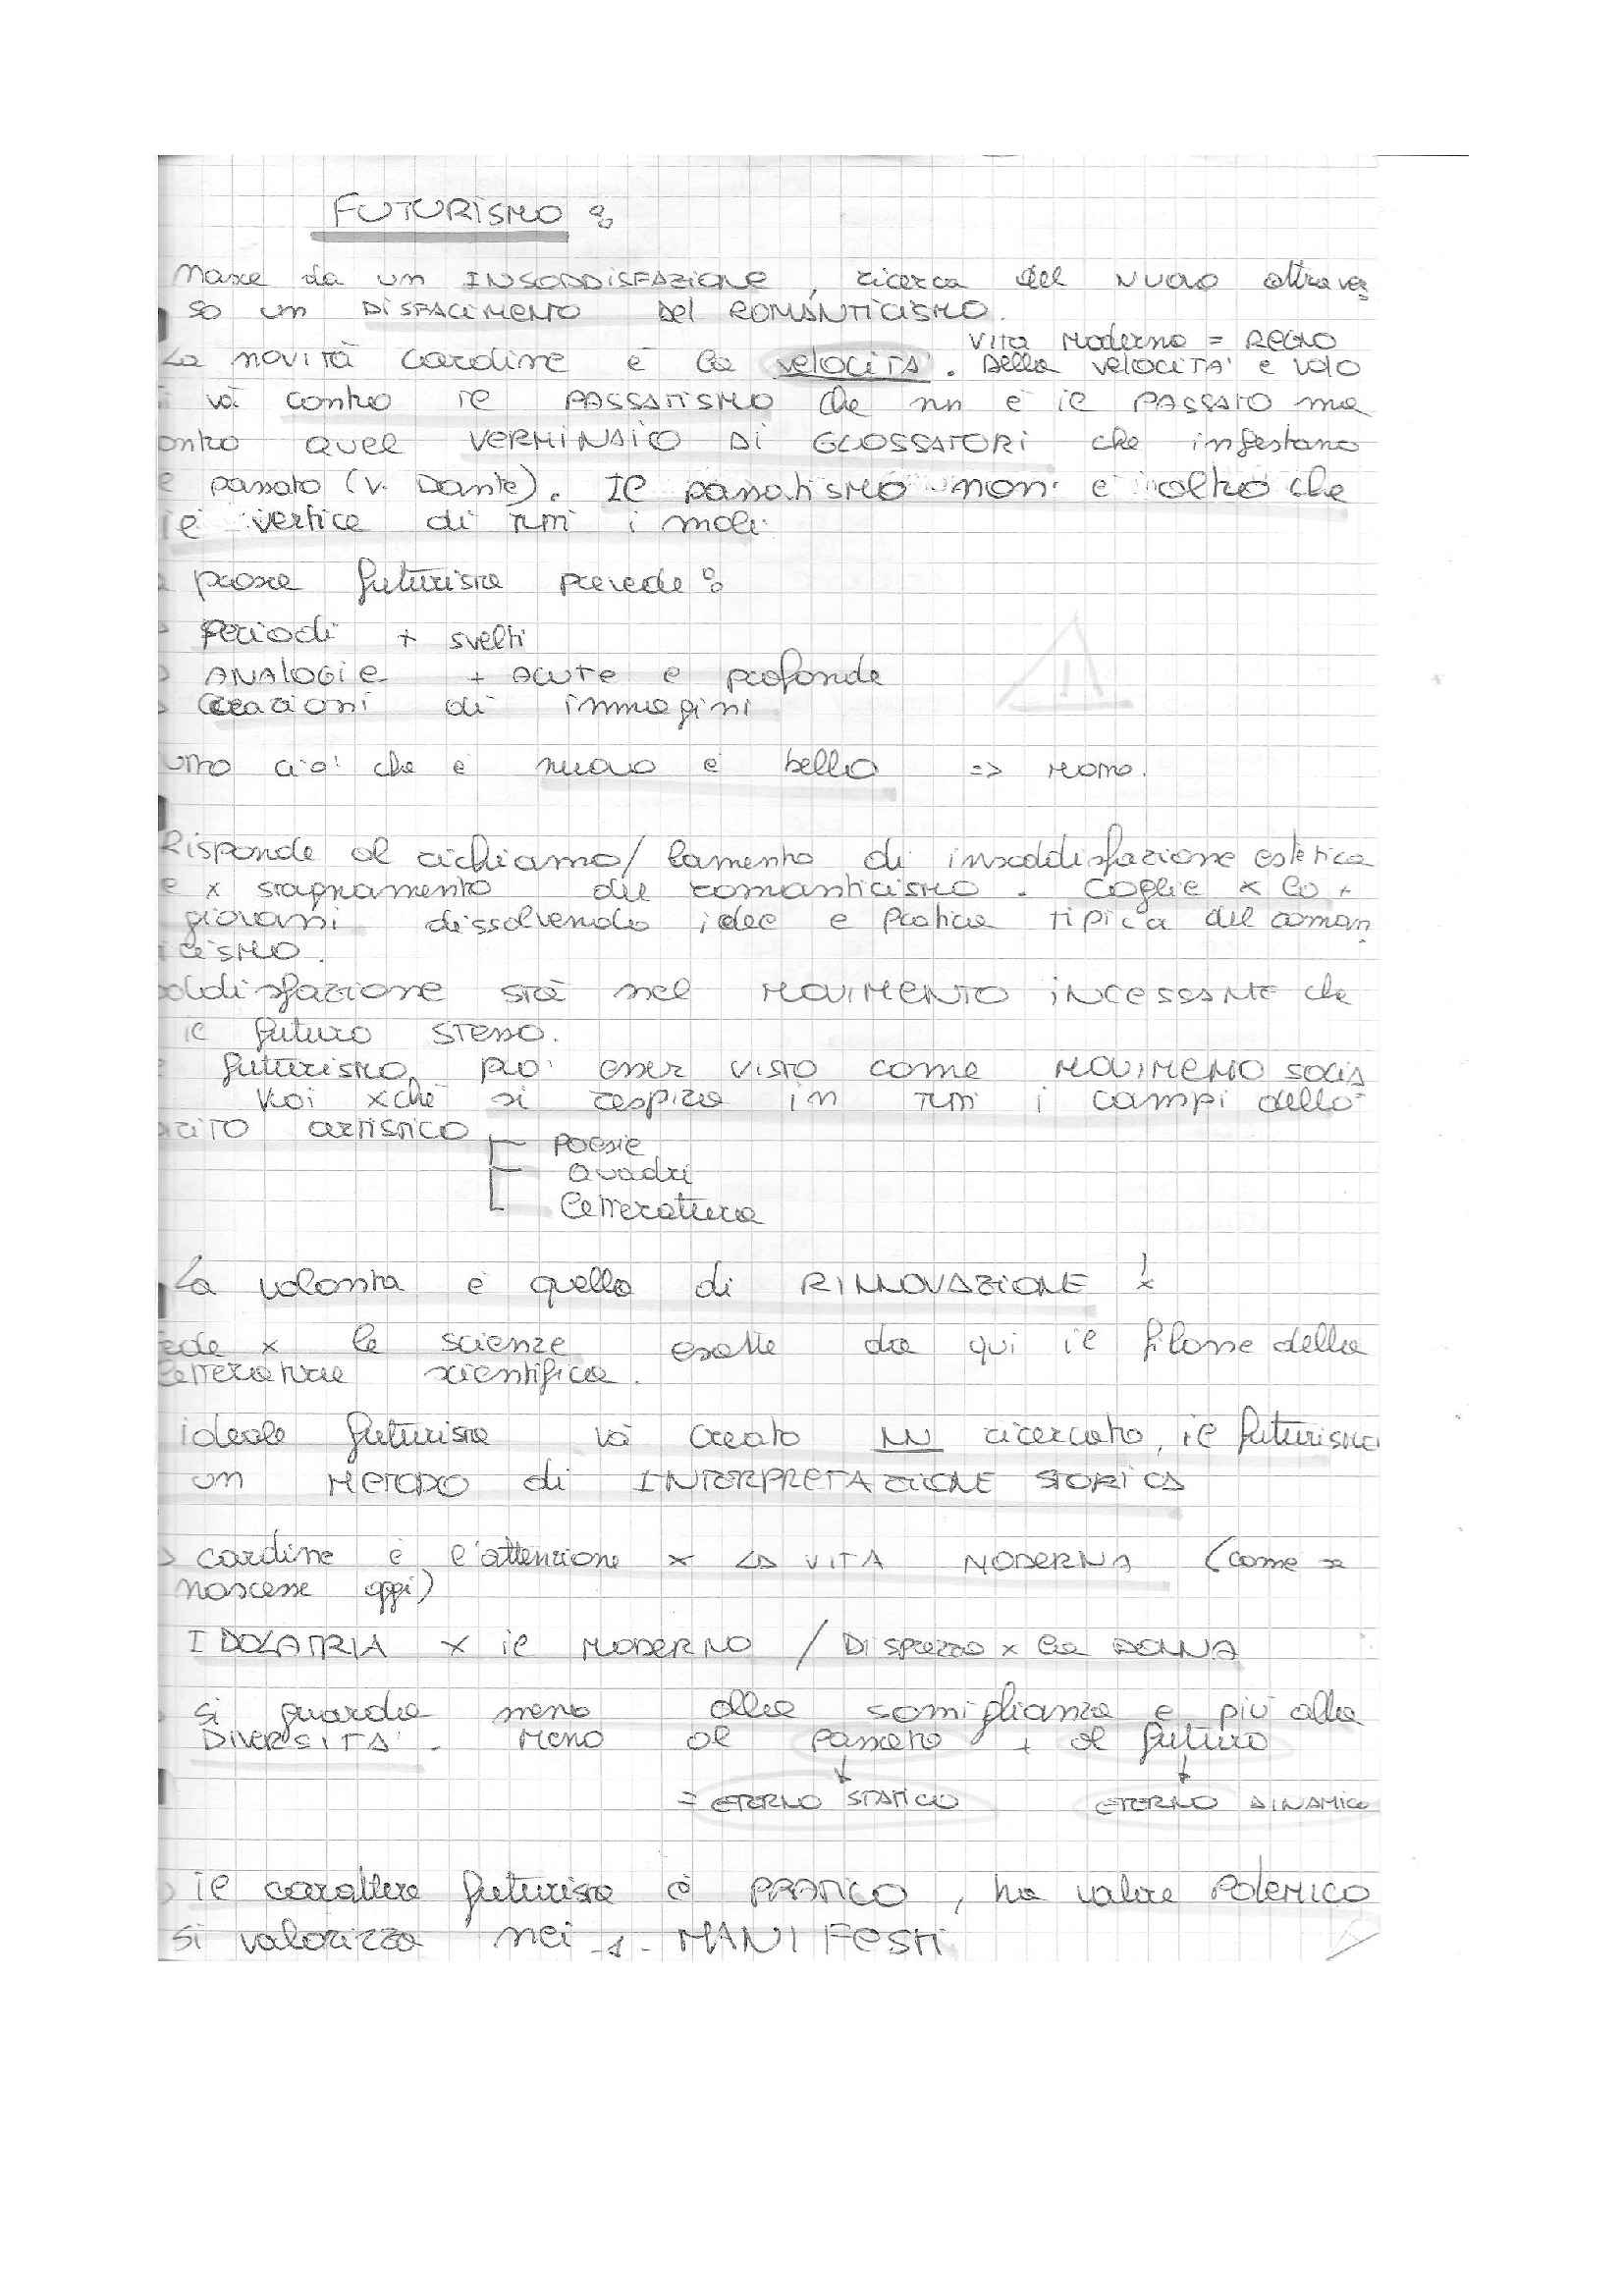 FUTURISMO :
Nasce da un INSODDISFAZIONE, ricerca del NUOVO attraver
so un DISFACIMENTO del ROMANTICISMO.
Vita Moderna = REGNO
La novità cardine è la velocità. Della velocità e volo
i và contro il PASSATISMO che nn è il PASSATO ma
ontro quel VERMINAIO DI GLOSSATORI che infestano
passato (v. Dante). Il passatismo non è altro che
il vertice di tutti i mali.
prosa futurista prevede :
periodi + svelti
ANALOGIE + ACUTE e profonde
Creazioni di immagini
utto ciò che è nuovo è bello =>
Risponde al richiamo/lamento di insoddisfazione estetica
e x stagnamento del romanticismo. Coglie x lo +
giovani dissolvendo idee e pratica tipica del roman
icismo.
oddisfazione stà nel MOVIMENTO INCESSANTE che
il futuro stesso.
futurismo può esser visto come MOVIMENTO
xchè si respira in tutti i campi dello
irito artistico
Poesie
Quadri
Letteratura
La volontà è quella di RINNOVAZIONE !
ede x le scienze esatte da qui il filone della
letteratura scientifica.
ideale futurista và creato NN ricercato, il futurismo
un METODO di INTERPRETAZIONE STORICA
> cardine è l'attenzione x LA VITA MODERNA (come se
nascesse oggi)
IDOLATRIA x il MODERNO / Disprezzo x la DONNA
si guarda meno alla somiglianza e più alla
DIVERSITÀ. Meno al passato + al futuro
= ETERNO STATICO ETERNO DINAMICO
il carattere futurista è PRATICO, ha valore POLEMICO
si valorizza nei MANIFESTI
-1-